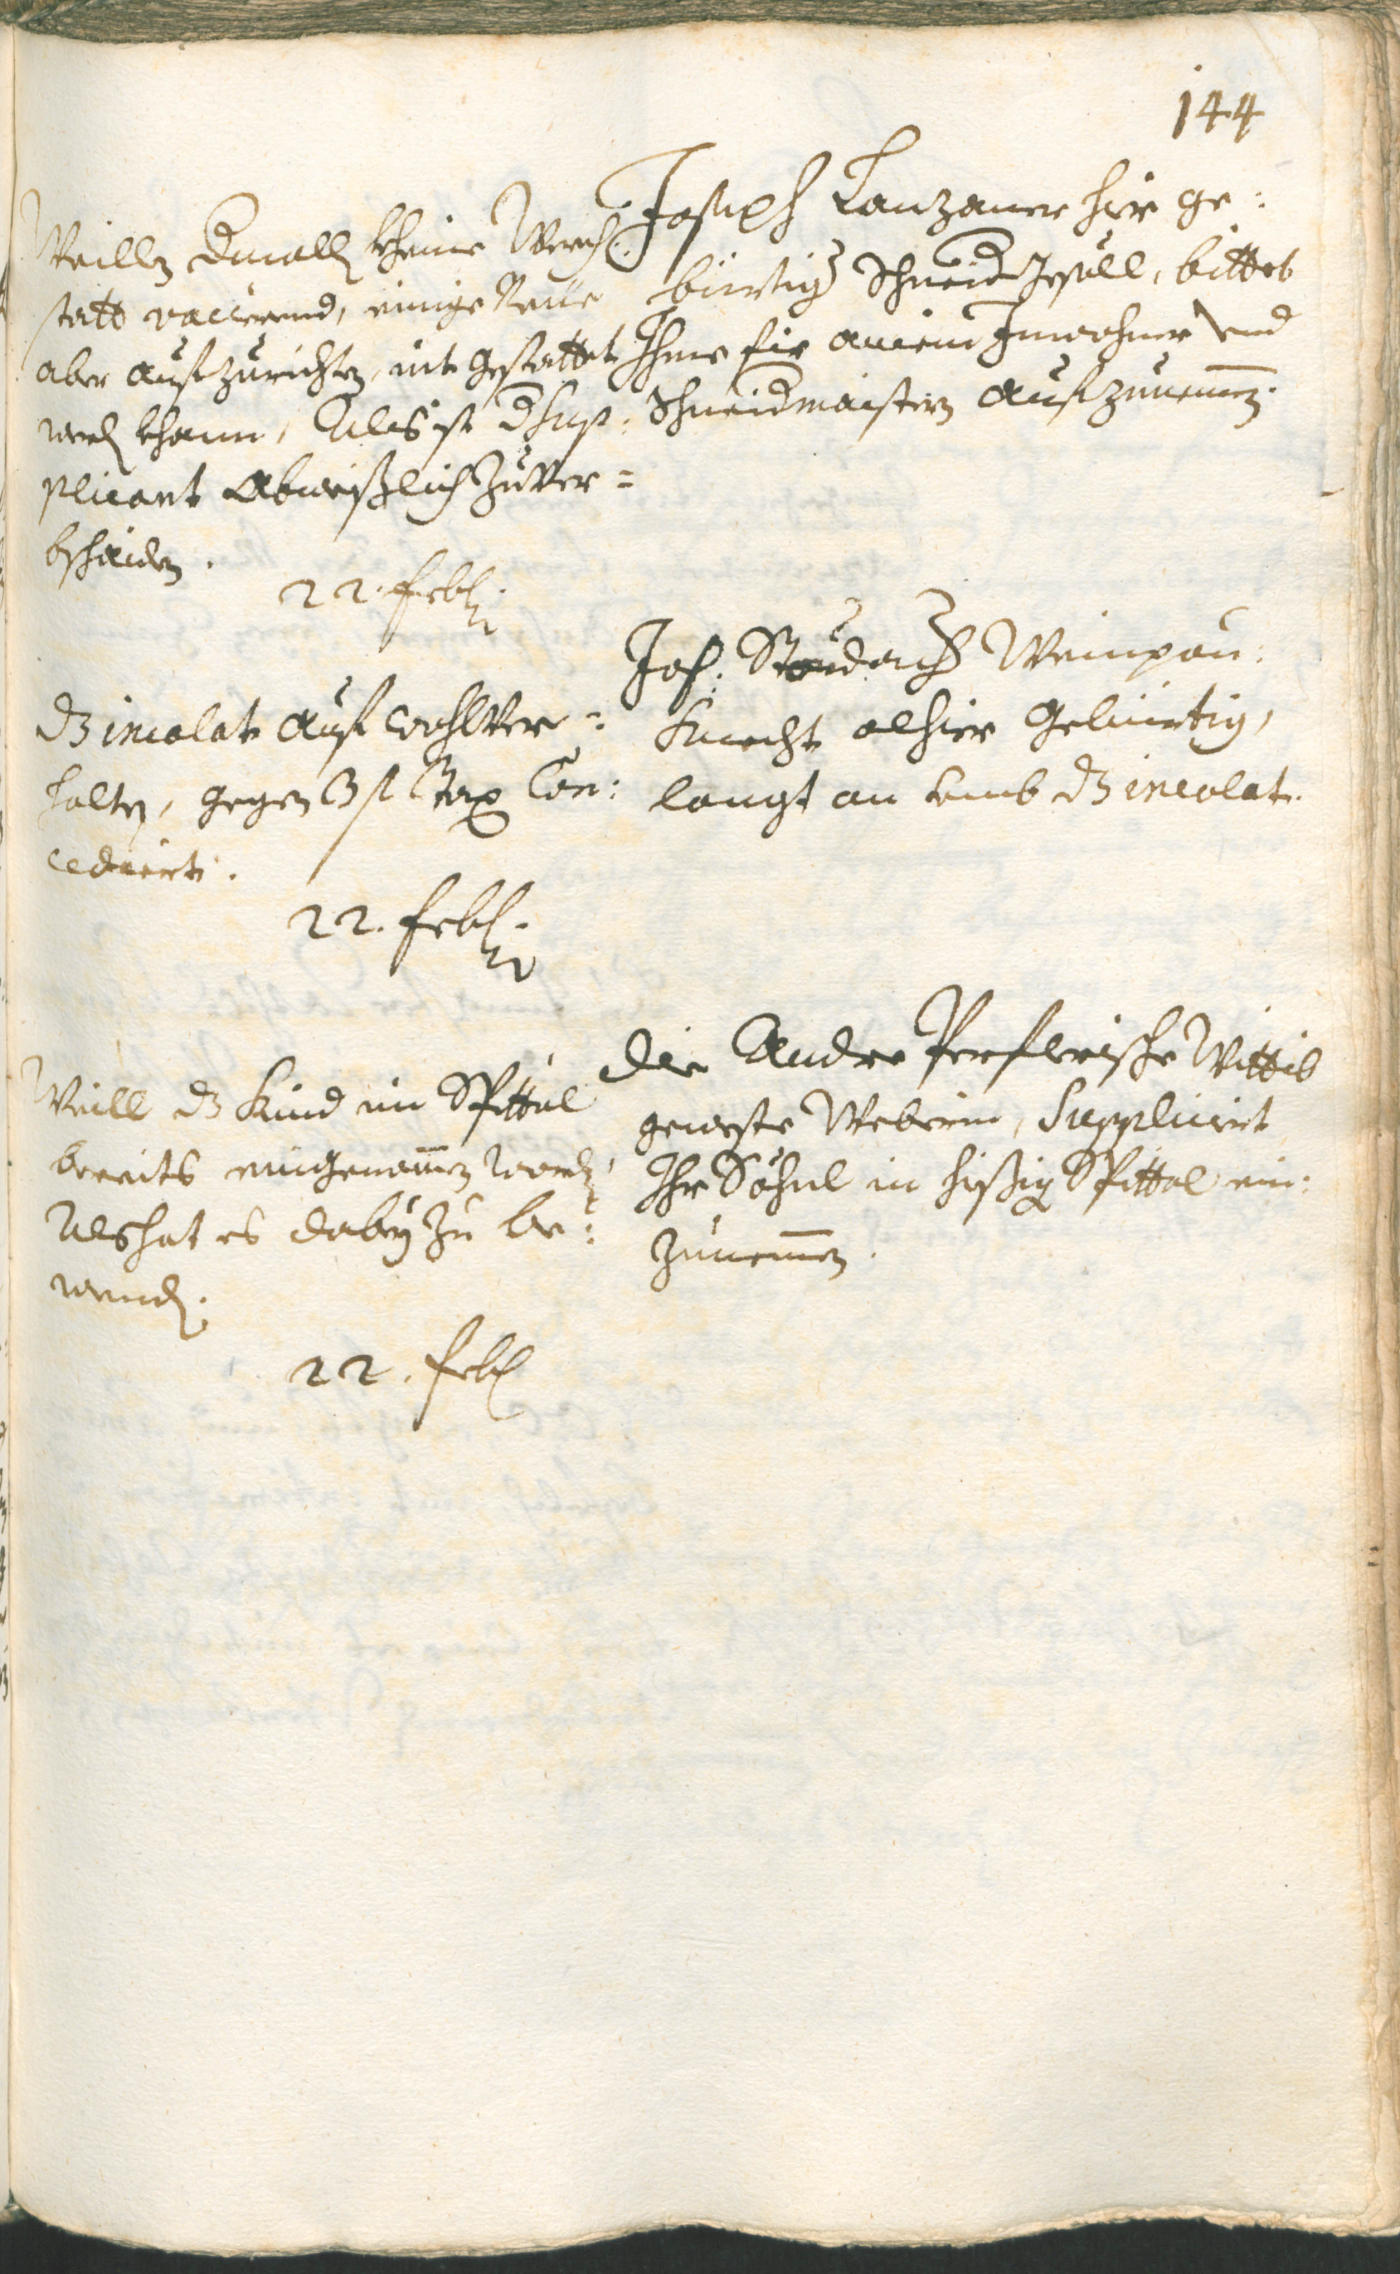 144
Joseph Lanzaner hie ge:
bürtig Schneid Gesöll, bittet
Ihme fir ainem Inwohner und
Schneidmaistern aufzunemen.
Weillen dmalls kheine Werch:
statt vacierend, einige Neue
aber aufzurichten, nit gestattet
werd khann, Als ist d Sup:
plicant abweißlich zu ver=
bschaiden.
22. Feb:
Jos: Staudach Weinpau:
Knecht alhier gebürtig,
langt an umb dz incolat.
dz incolat auf wohlver=
halten, gegen 3 f Tax Con:
cediert.
22. Feb:
Die Andre Perflerische Wittib
geweste Weberin, Supplicirt
Ihr Söhnl in hießig Spittal ein:
zunemen.
Weill dz Kind im Spittal
bereits eingenomen word,
Als hat es dabey zu be:
wend.
22. Feb